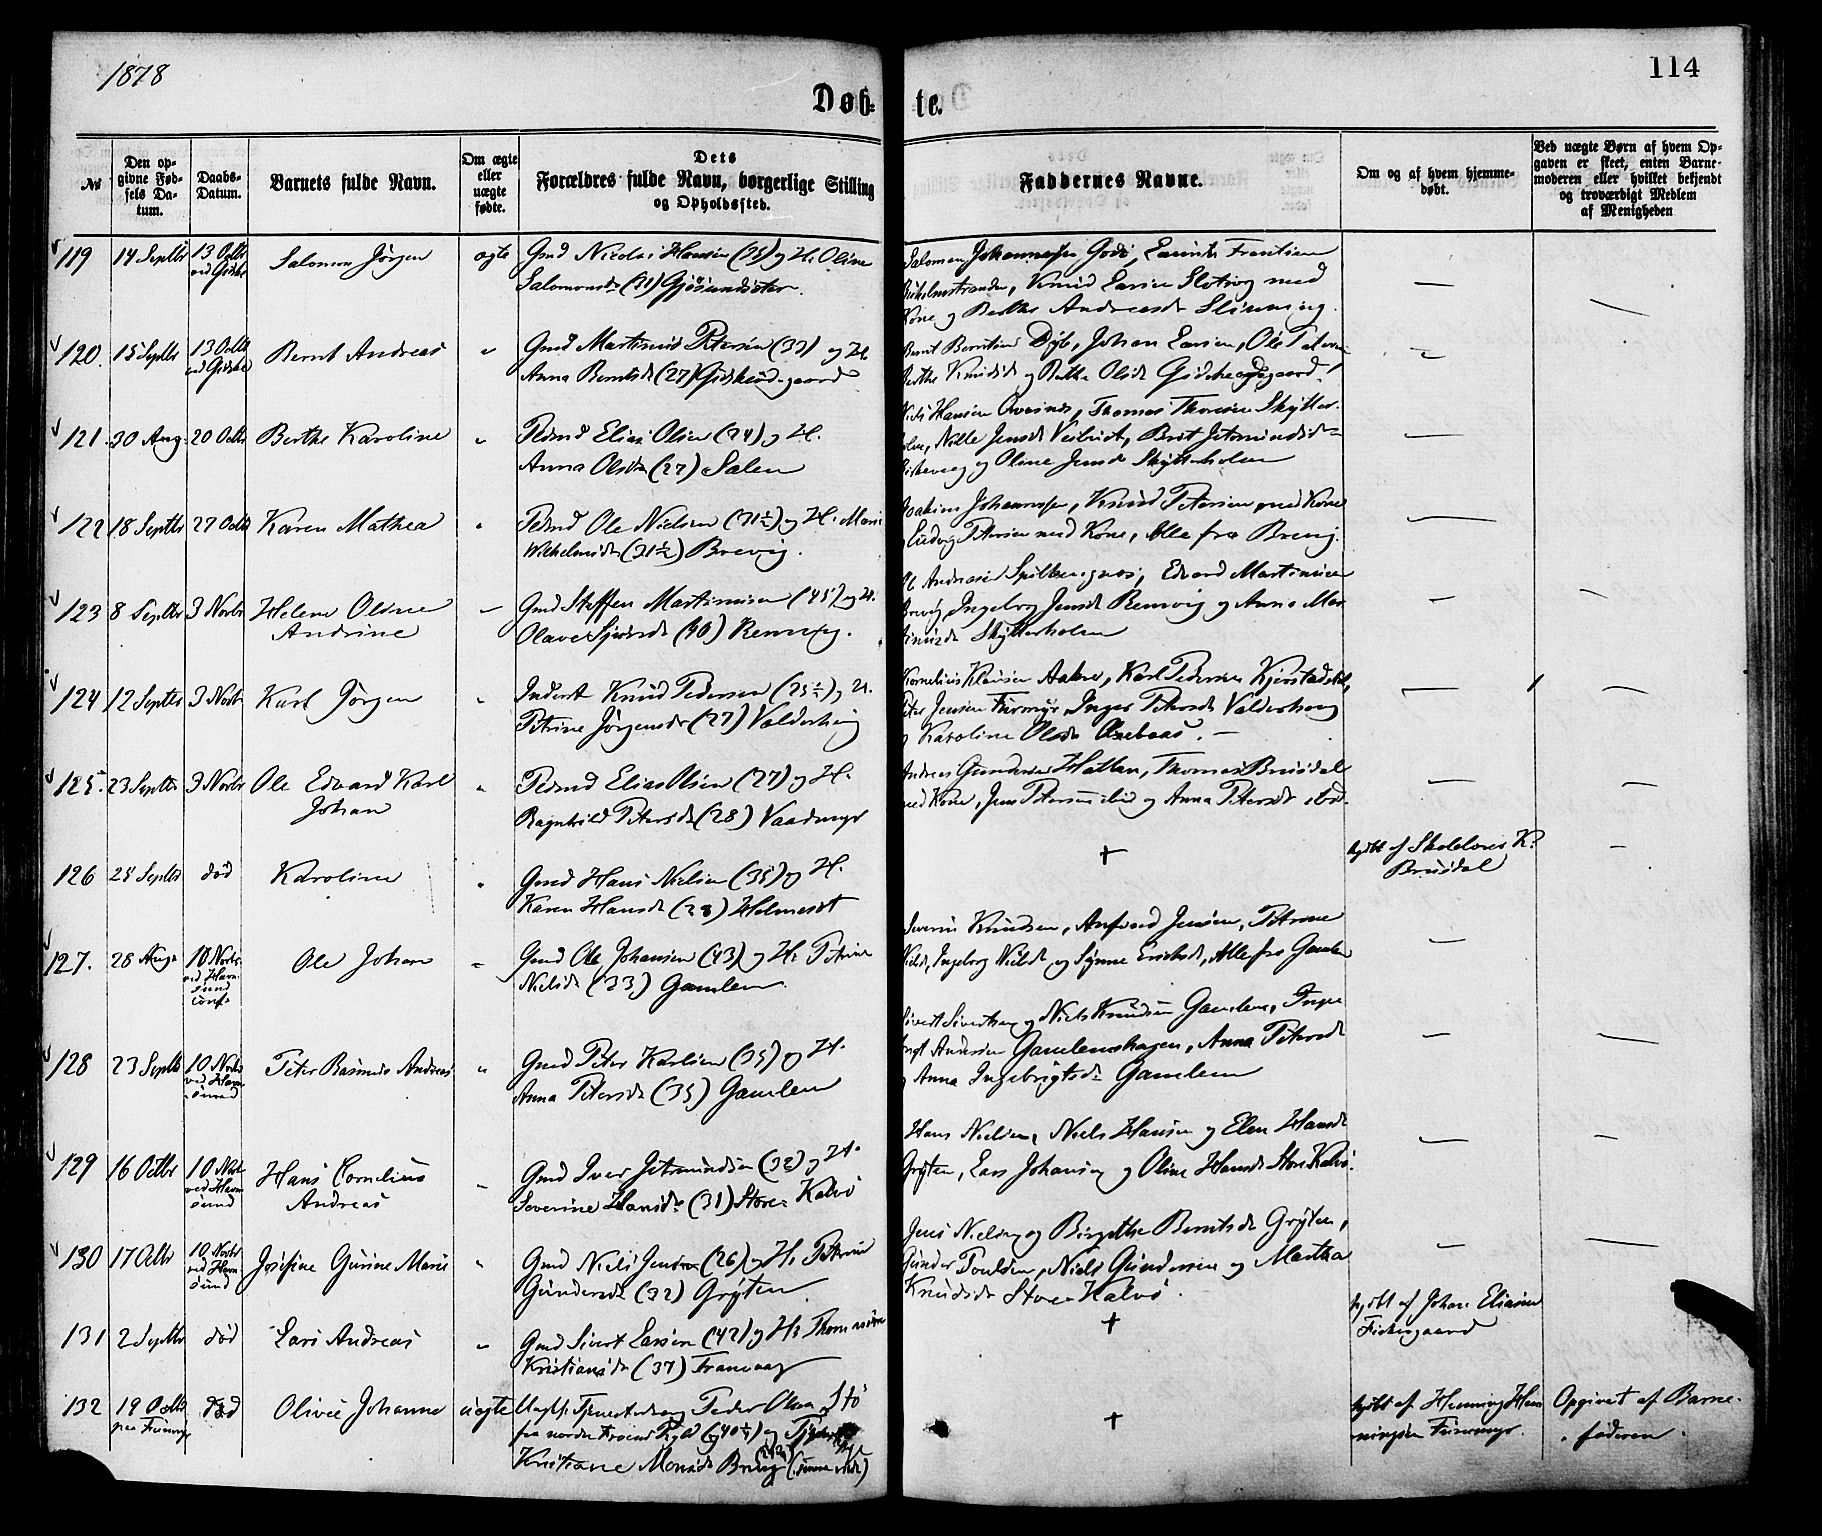 1878
114
Døb- te.
№
Den opgivne Fødsels Datum.
Daabs-Datum.
Barnets fulde Navn.
Om ægte eller uægte fødte.
Dets Forældres fulde Navn, borgerlige Stilling og Opholdssted.
Faddernes Navne.
Om og af hvem hjemmedøbt.
Ved uægte Børn af hvem Opgaven er skeet, enten Barnemoderen eller hvilket bekjendt og troværdigt Medlem af Menigheden
119 14 Septbr 13 Octbr ved Giske Salomon Jørgen ægte Gmd Nicolai Hansen (35) og H. Oline
Salomonsdr (31) Gjøsundsæter.
Salomon Johannessen Godø,
Knud Larsen Slotvog med
Kone og Berthe Andreasdr Slinning.
120. 15 Septbr 13 Octbr ved Giske Bernt Andreas " Gmd Martinus Petersen (33) og H.
Anna Berntsdr (27) Giskeødegaard
Bernt Berntsen Dyb, Johan Larsen, Ole Petersen
Berthe Knudsdr og Berthe Olsdr Giskeødegaard.
121. 30 Aug. 20 Octbr Berthe Karoline " Pdmd Elias Olsen (24) og H.
Anna Olsdr (27) Salen
Niels Hansen Aarsnes, Thomas Thoresen Skytterholm, Nille Jensdr
og Oline Jensdr Skytterholm
122 18 Septbr 27 Octbr Karen Mathea " Pdmd Ole Nielsen (31½) og H. Marie
Wilhelmsdr (31½) Brevig.
Joakim Johannessen, Knud Petersen med Kone
og Ludvig Petersen med Kone, Alle fra Brevig.
123 8 Septbr 3 Novbr Helene Oline
Andrine
Gmd Steffen Martinusen (45) og H.
Olave Sjursdr (40)
Ole Andreasen Spilkevignes, Edvard Martinusen
Brevig, Ingeborg Jensdr og Anna Martinusdr Skytterholm
124 12 Septbr 3 Novbr Karl Jørgen " Inderst Knud Pedersen (25½) og H.
Petrine Jørgensdr (27) Valderhaug
Kornelius Klausen Aakre, Karl Pedersen Kjerstadstrl.,
Peter Jensen Furmyr, Inger Petersdr Valderhaug
og Karoline Olsdr
125. 23 Septbr 3 Novbr Ole Edvard Karl
Johan
Pdmd Elias Olsen (27) og H.
Ragnhild Petersdr (28) Vaadmyr
Andreas Gundersen Hatlen, Thomas Brusdal
med Kone, Jens Petersen ibid og Anna Petersdr ibd.
126 25 Septbr død Karoline " Gmd Hans Nielsen (35) og H.
Karen Hansdr (28)
+
hjdbt af Skolelærer K.
Brusdal
127. 28 Aug. 10 Novbr ved Havnsund Ole Johan Gmd Ole Johansen (43) og H. Petrine
Nielsdr (33) Gamlem
Severin Knudsen, Jensen, Petrine
Nielsdr, Ingeborg Nielsdr og Synne Eriksdr, Alle fra Gamlem
128 23 Septbr 10 Novbr ved Havnsund Peter Rasmus Andreas " Gmd Peter Karlsen (35) og H.
Anna Petersdr (35) Gamlem
Sivert Sivertsen og Niels Knudsen Gamlem,
Andersen Gamlemshagen, Anna Petersdr
og Anna Ingebrigtsdr Gamlem
129 16 Octbr 10 Novbr ved Havnsund Hans Cornelius
Andreas
Gmd Iver Jetmundsen (32) og H.
Severine Hansdr (31) Store Kalvø
Hans Nielsen, Niels Hansen og Elen Hansdr
Gryten, Lars Johansen og Oline Hansdr Store Kalvø.
130 17 Octbr 10 Novbr ved Havnsund Josefine Gurine Marie " Gmd Niels Jensen (26) og H. Petrine
Gundersdr (32) Gryten.
Jens Nielsen og Birgitha Berntsdr Gryten,
Gunder Poulsen, Niels Gundersen og Martha
Knudsdr Store Kalvø.
131 2 Septbr død Lars Andreas " Gmd Sivert Larsen (42) og H. Thommine
Kristiansdr (37)
+
hjdbt af Johan Eliasen
132 19 Octbr død Olive Johanne uægte Ungk. Tjenestedreng Peder Olsen
fra og Tjpige
Kristiane Monsdr
+
hjdbt af Henning Henningsen
Opgivet af Barnefaderen.